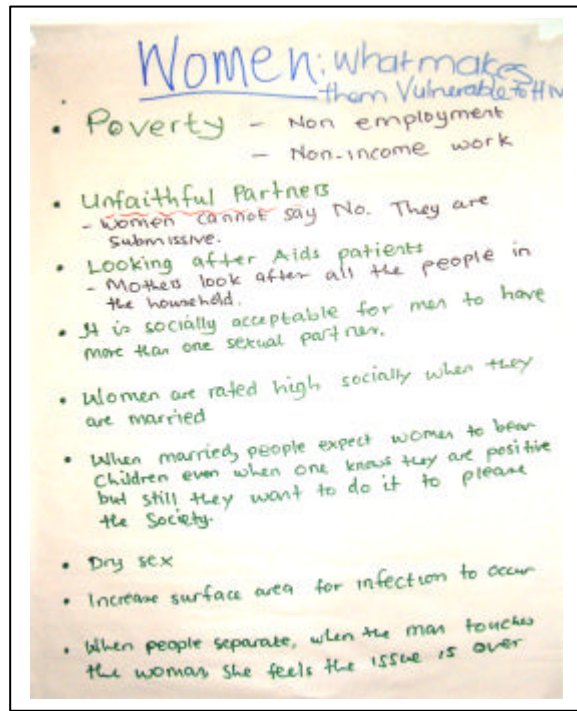 Women: What makes
them Vulnerable to HIV
• Poverty - Non employment
- Non-income work
• Unfaithful Partners
- Women cannot say No. They are
submissive.
• Looking after Aids patients
- Mothers look after all the people in
the household.
• It is socially acceptable for men to have
more than one sexual partner.
• Women are rated high socially when they
are married
• When married, people expect women to bear
children even when one knows they are positive
but still they want to do it to please
the Society.
• Dry sex
• Increase surface area for infection to occur
• When people separate, when the man touches
the woman, she feels the issue is over